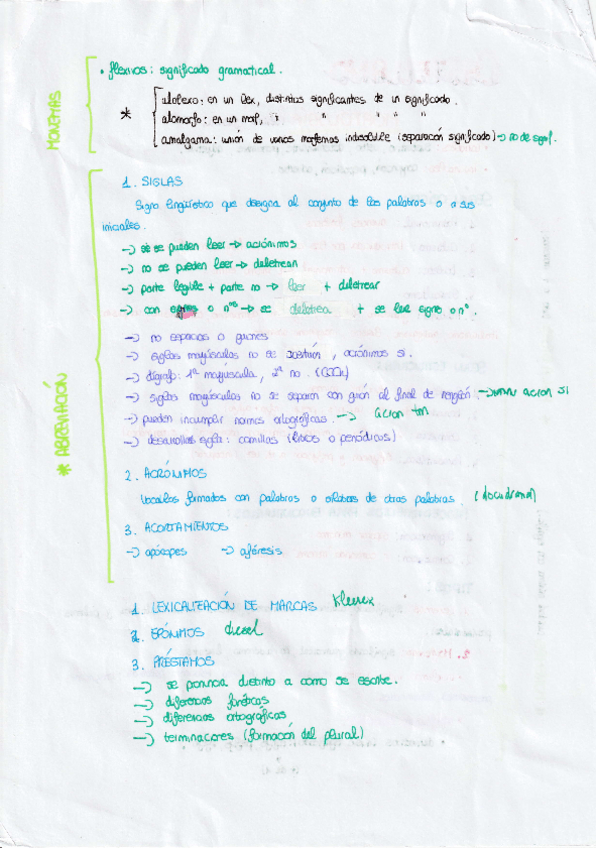 MONEMAS
• flexivos: significado gramatical.
* alolexo: en un lex, distintos significantes de un significado.
alomorfo: en un morf, " " " "
amalgama: unión de varios morfemas indisoluble (separación significado) → no de signif.
* ABREVIACIÓN
1. SIGLAS
Signo lingüístico que designa al conjunto de las palabras o a sus
iniciales.
→ se pueden leer → acrónimos
→ no se pueden leer → deletrean
→ parte legible + parte no → leer + deletrear
→ con signos o nºs → se deletrea + se lee signo o nº.
→ no espacios o guiones
→ siglas mayúsculas no se acentúan, acrónimos si.
→ dígrafo: 1ª mayúscula, 2ª no. (CCCh)
→ siglas mayúsculas no se separan con guión al final de renglón. → acron si
→ pueden incumplir normas ortográficas. → Acron tm
→ desarrollar sigla: comillas (libros o periódicos)
2. ACRÓNIMOS
Vocablos formados con palabras o sílabas de otras palabras. (docudrama)
3. ACORTAMIENTOS
→ apócopes → aféresis
1. LEXICALIZACIÓN DE MARCAS Kleenex
2. EPÓNIMOS diesel
3. PRÉSTAMOS
→ se pronuncia distinto a como se escribe.
→ diferencias fonéticas
→ diferencias ortográficas
→ terminaciones (formación del plural)